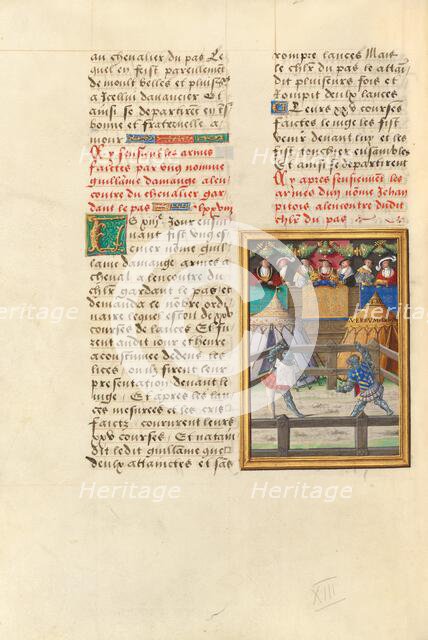 au chevalier du pas Le
quel en feist pareillement
de moult belles et pluss<sup>rs</sup>
a Icellui damancier Et
ainsi se departirent en
bonne et fraternelle a
mour
Cy sensuiv les armes
faictes par ung nomme
guillaume damange alen
contre du chevalier gar
dant le pas lxxviii
Le xiije Jour ensui
vant fist ung es
cuier nome guil
laume damange armes a
cheval a lencontre du
chlr gardant le pas et
demanda le nobre ordi
naire lequel estoit de xxv
courses de lances Et fu
rent audit jour et heure
acoustumee dedens les
lices ou ilz firent leur
presentation devant le
juge Et apres les lan
ces mesurees et les cris
faictz coururent leurs
xxv courses Et natain
dit ledit guillaume que
deulx attainctes et sans
rompre lances Mais
le chlr du pas le attain
dit plusieurs fois et
Rompit deulx lances
Et leurs xxv courses
faictes le juge les fist
venir devant luy et les
fist toucher ensambles
Et ainsi se departirent
Cy apres sensuivent les
armes dun nome Jehan
pitois alencontre dudit
chlr du pas
XIII
Heritage
Images